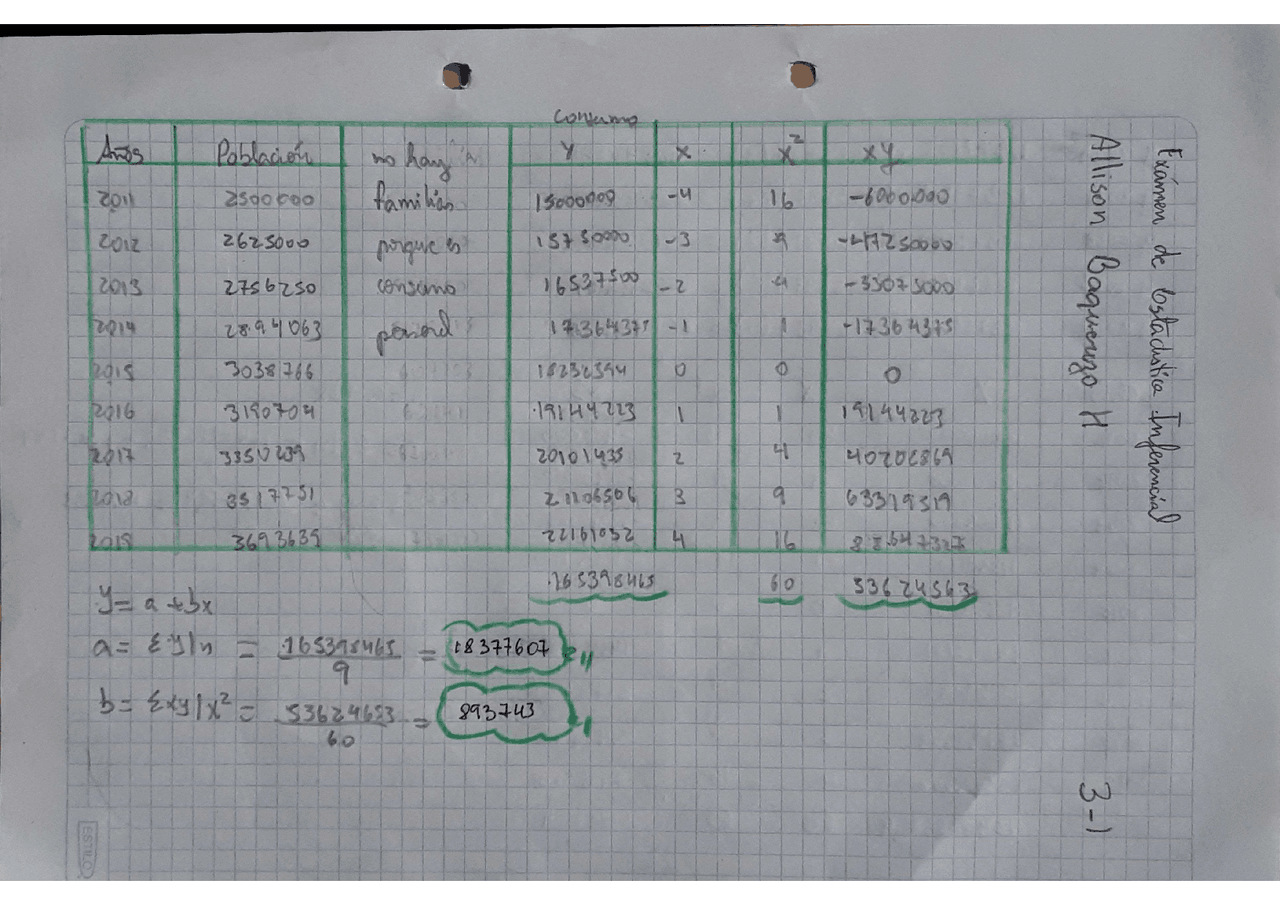 Exámen de Estadística Inferencial
Allison Baquerizo H
3-1
Consumo
Años Población no hay Y x x² xy
2011 2500000 familias 15000000 -4 16 -6000.000
2012 2625000 porque es 15750000 -3 9 -47250000
2013 2756250 consumo 16537500 -2 4 -33075000
2014 2894063 17364375 -1 1 -17364375
2015 3038766 18232594 0 0 0
2016 3190704 19144223 1 1 19144223
2017 3350239 20101435 2 4 40202869
2018 3517751 21106506 3 9 63319519
2019 3693639 22161032 4 16 88647327
165398465 60 53624563
y= a +bx
a= ΣY/n = 165398465 / 9 = 18377607
b= Σxy/x² = 53624623 / 60 = 893743
ESTILO